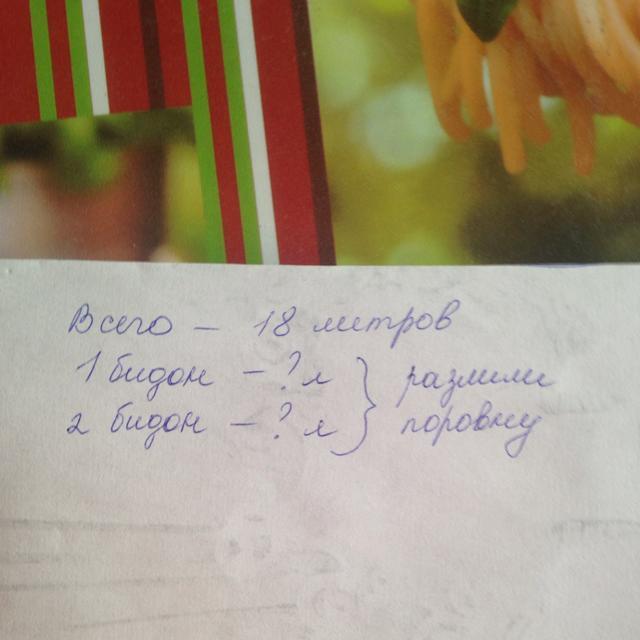 Всего – 18 литров
1 бидон – ? л } разлили
2 бидон – ? л } поровну